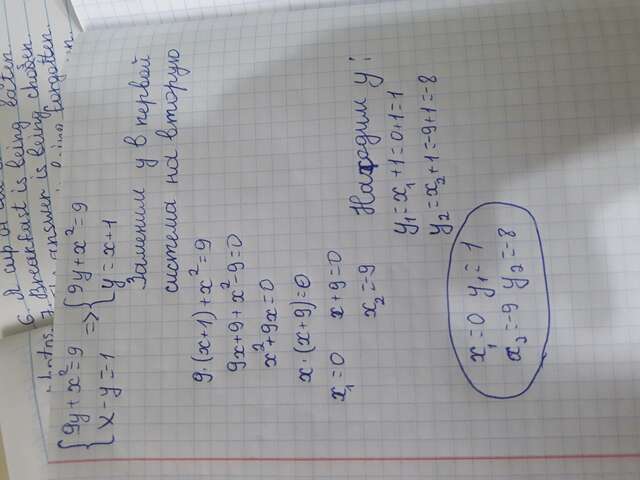 6. A cup
Breakfast is being eaten.
7. answer is being chosen.
forgotten.
{ 9y + x² = 9 => { 9y + x² = 9
{ x - y = 1 { y = x + 1
Заменим y в первой
система на вторую
9·(x+1) + x² = 9
9x + 9 + x² - 9 = 0
x² + 9x = 0
x·(x+9) = 0
x₁ = 0 x + 9 = 0
x₂ = -9
Находим y:
y₁ = x₁ + 1 = 0 + 1 = 1
y₂ = x₂ + 1 = -9 + 1 = -8
x₁ = 0 y₁ = 1
x₂ = -9 y₂ = -8